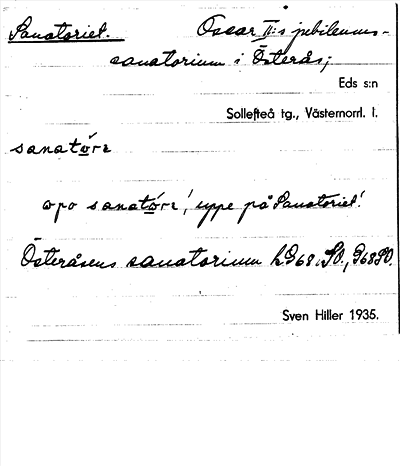 Sanatoriet. Oscar II:s jubileums-
sanatorium i Österås;
Eds s:n
Sollefteå tg., Västernorrl. l.
sanatórı
opo sanatórı, 'uppe på Sanatoriet'.
Österåsens sanatorium h968 SO., 968 SO.
Sven Hiller 1935.